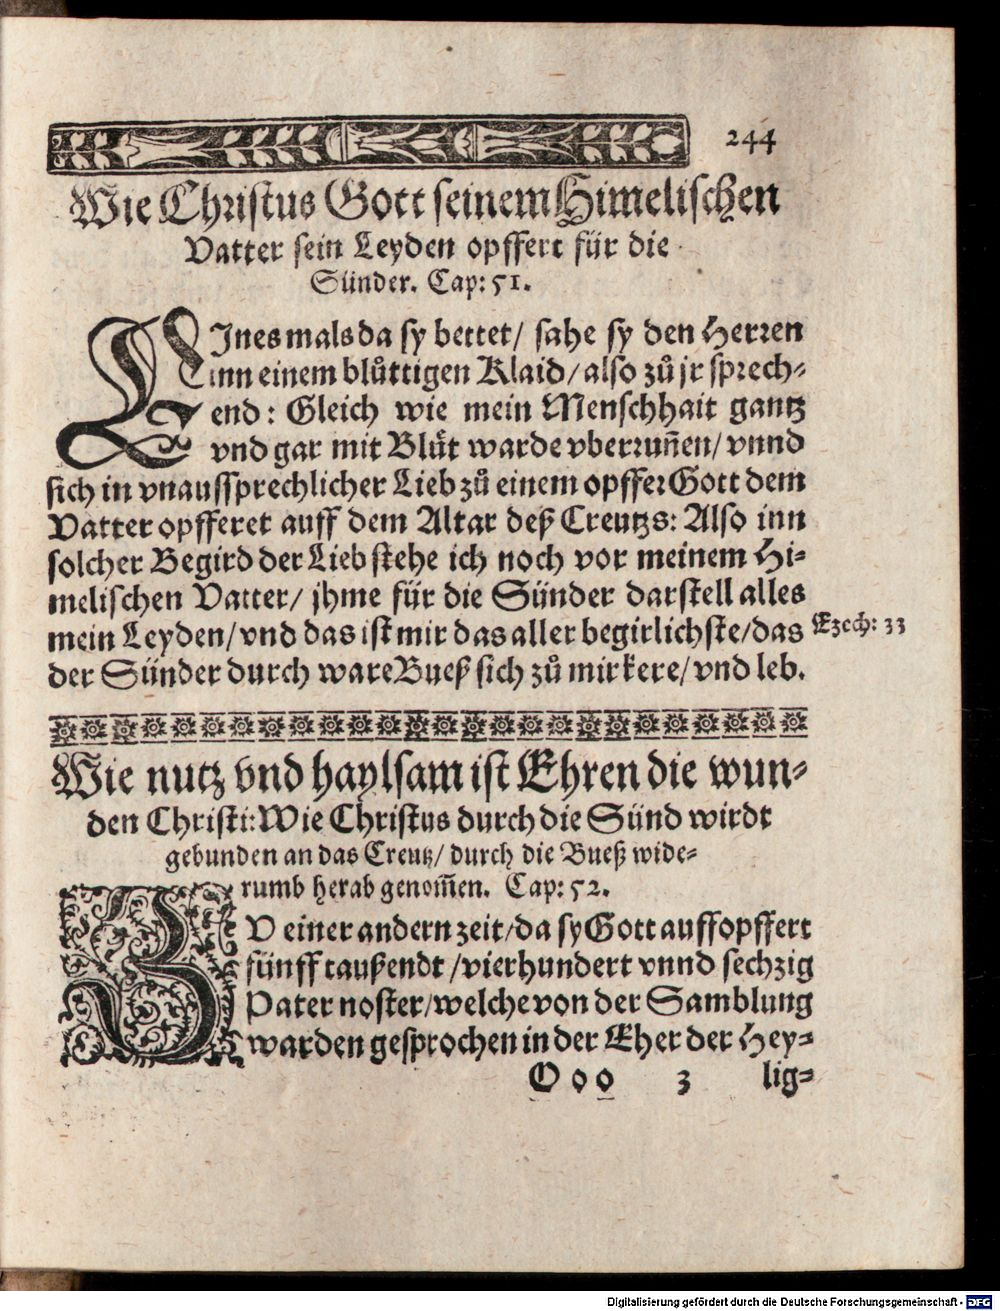 244
Wie Christus Gott seinem Himelischen
Vatter sein Leyden opffert für die
Sünder. Cap: 51.
EInes mals da sy bettet/ sahe sy den Herren
inn einem blůttigen Klaid/ also zů jr sprech-
end: Gleich wie mein Menschhait gantz
vnd gar mit Blůt warde vberruñen/ vnnd
sich in vnaussprechlicher Lieb zů einem opffer Gott dem
Vatter opfferet auff dem Altar deß Creutzs: Also inn
solcher Begird der Lieb stehe ich noch vor meinem Hi-
melischen Vatter/ jhme für die Sünder darstell alles
mein Leyden/ vnd das ist mir das aller begirlichste/ das
Ezech: 33
der Sünder durch ware Bueß sich zů mir kere/ vnd leb.
Wie nutz vnd haylsam ist Ehren die wun-
den Christi: Wie Christus durch die Sünd wirdt
gebunden an das Creutz/ durch die Bueß wide-
rumb herab genom̃en. Cap: 52.
ZV einer andern zeit/ da sy Gott auffopffert
fünff taußendt/ vierhundert vnnd sechzig
Pater noster/ welche von der Samblung
warden gesprochen in der Eher der Hey-
Ooo 3 lig-
Digitalisierung gefördert durch die Deutsche Forschungsgemeinschaft - DFG